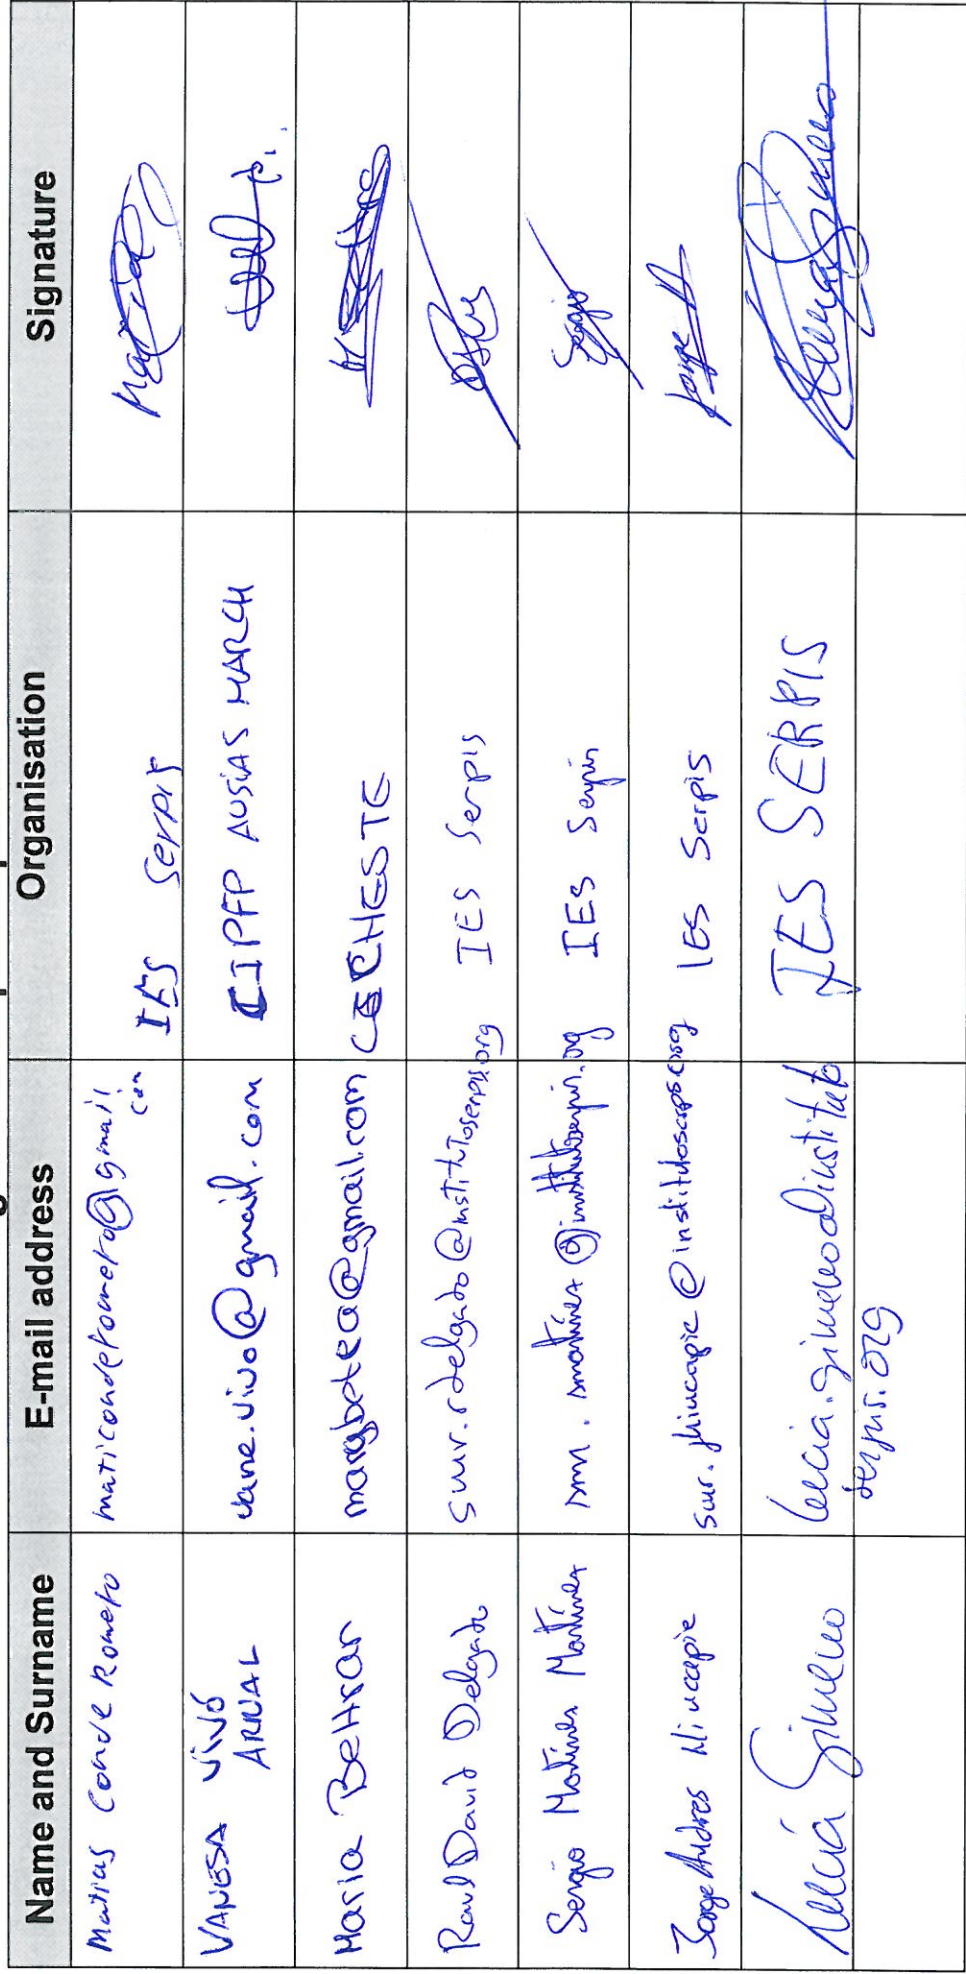 Name and Surname E-mail address Organisation Signature
Matias Conde Romero maticonderomero@gmail.com IES Serpis Matias
VANESA VIVÓ ARNAL vane.vivo@gmail.com CIPFP AUSIAS MARCH
Maria Beltran margbetea@gmail.com CHESTE
Raul David Delgado smr.rdelgado@institutoserpis.org IES Serpis
Sergio Martínez Martínez smr.smartinez@institutoserpis.org IES Serpis Sergio
Jorge Andres Hincapie smr.jhincapie@institutoserpis.org IES Serpis Jorge H
Gimeno IES SERPIS
serpis.org